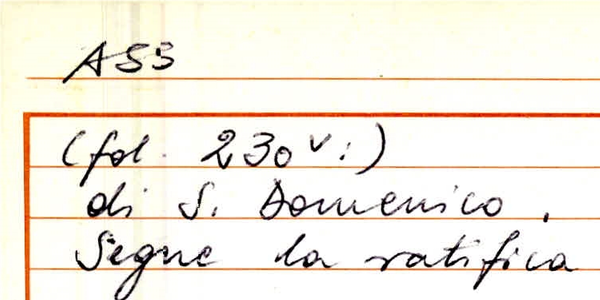 ASS
(fol. 230v:)
di S. Domenico.
Segue la ratifica